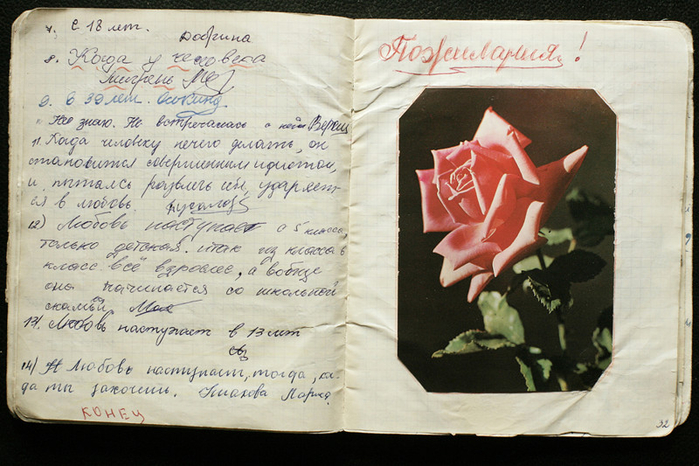 7. с 18 лет.
8. Когда у человека
мигрень
9. с 30 лет.
Не знаю. Не встречалась с ней
11. Когда человеку нечего делать, он
становится совершенным идиотом,
и, пытаясь развлечь себя, ударяет-
ся в любовь
12) Любовь наступает с 5 класса,
только детская. итак из класса в
класс всё взрослее, а вобще
она начинается со школьной
скамьи.
13). Любовь наступает в 13 лет
14) Любовь наступает, тогда, ког-
да ты захочешь. Ушакова Мария.
КОНЕЦ
Пожелания!
32